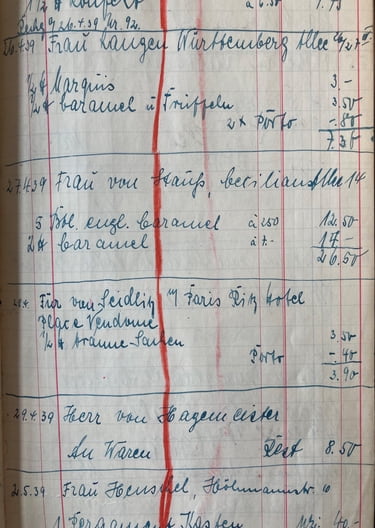 1/2 ℔ Konfekt à 6.50 1.75
26.4.39 Nr. 92.
26.4.39 Frau Langen Württemberg Allee 26/27 III
1/2 ℔ Marguis 3.-
1/2 ℔ Caramel u Trüffeln 3.50
2 x Porto -.80
7.30
27.4.39 Frau von Stauß, Cecilienallee 14
5 Btl. engl. Caramel à 250 12.50
2 ℔ Caramel à 7.- 14.-
26.50
Für von Seidlitz Paris Ritz Hotel
Place Vendôme
1/2 ℔ 3.50
Porto -.40
3.90
29.4.39 Herr von Hagemeister
An Waren Rest 8.50
2.5.39 Frau Henschel, Höhmannstr. 10
1 Pergament Kasten 40.-